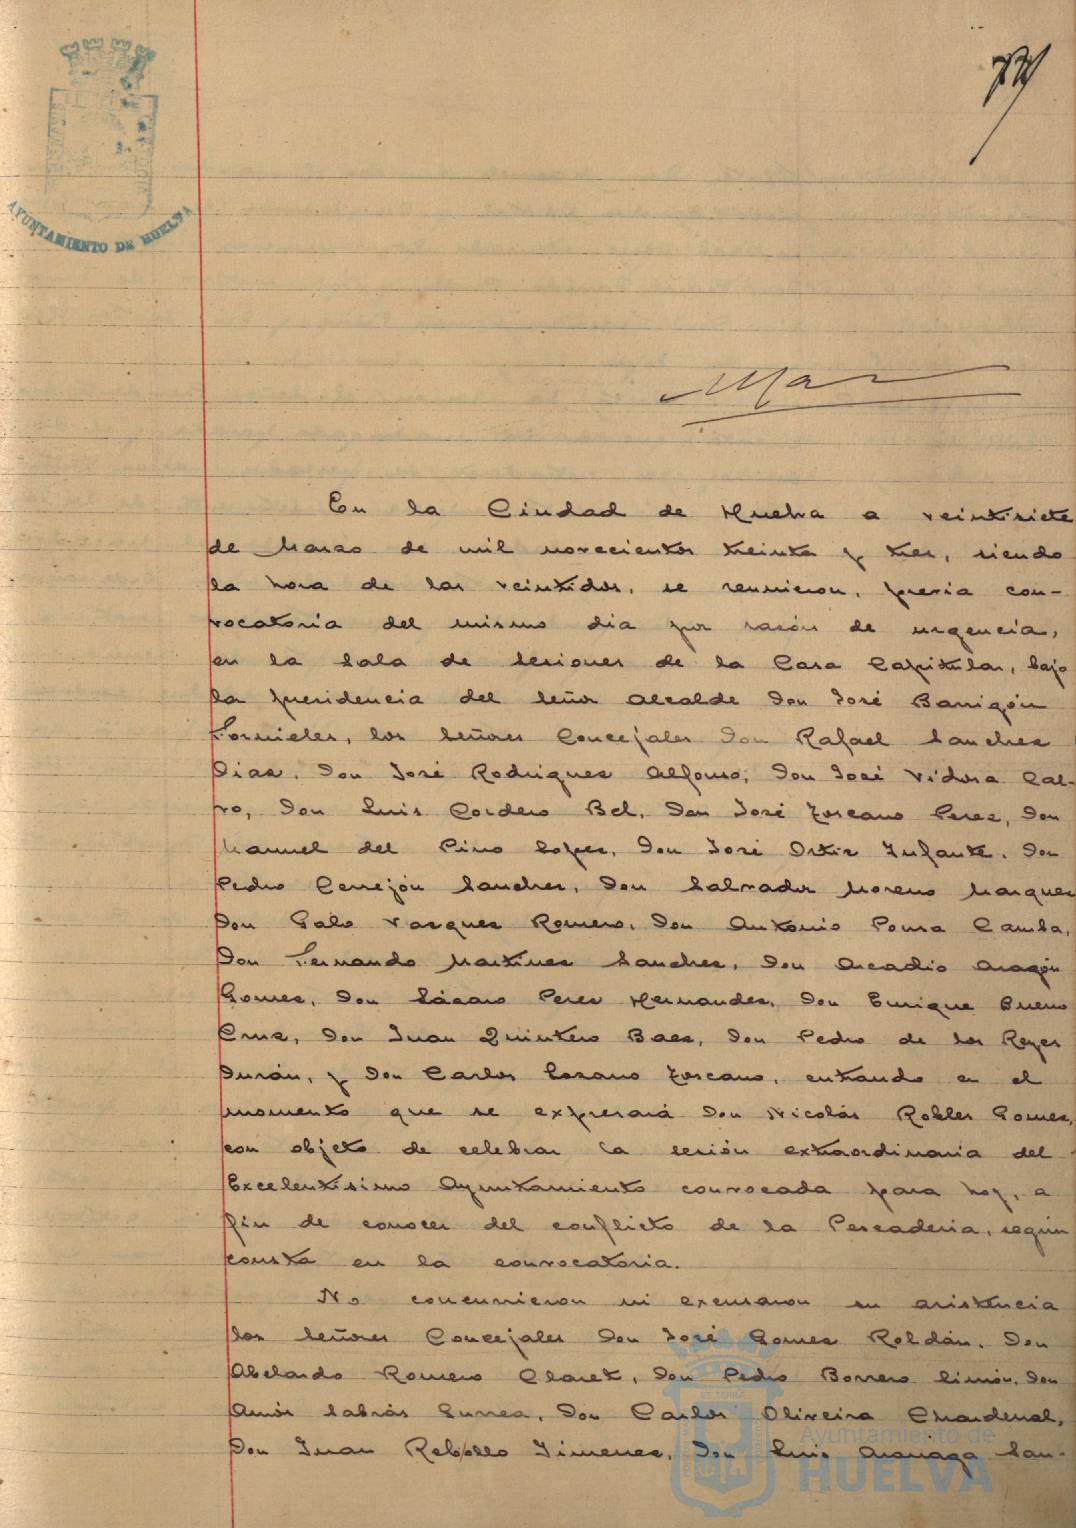 AYUNTAMIENTO DE HUELVA
En la Ciudad de Huelva a veintisiete
de Marzo de mil novecientos treinta y tres, siendo
la hora de las veintidos, se reunieron, previa con-
vocatoria del mismo dia por razón de urgencia,
en la Sala de Sesiones de la Casa Capitular, bajo
la presidencia del Señor Alcalde Don José Barrigón
Fornieles, los Señores Concejales Don Rafael Sanchez
Diaz, Don José Rodriguez Alfonso, Don José Vidosa Cal-
vo, Don Luis Cordero Bel, Don José Toscano Perez, Don
Manuel del Pino Lopez, Don José Ortiz Infante, Don
Pedro Cerrejón Sanchez, Don Salvador Moreno Marquez
Don Galo Vazquez Romero, Don Antonio Pousa Camba,
Don Fernando Martinez Sanchez, Don Arcadio Aragón
Gomez, Don Lázaro Perez Hernandez, Don Enrique Bueno
Cruz, Don Juan Quintero Baez, Don Pedro de los Reyes
Durán, y Don Carlos Lozano Toscano, entrando en el
momento que se expresará Don Nicolás Robles Gomez,
con objeto de celebrar la sesión extraordinaria del
Excelentisimo Ayuntamiento convocada para hoy, a
fin de conocer del conflicto de la Pescaderia, según
consta en la convocatoria.
No concurrieron ni excusaron su asistencia
los Señores Concejales Don José Gomez Roldán, Don
Abelardo Romero Claret, Don Pedro Borrero Limón, Don
Amós Sabrás Gurrea, Don Carlos Oliveira Chardenal,
Don Juan Rebollo Jimenez, Don Luis San-
Ayuntamiento de
HUELVA